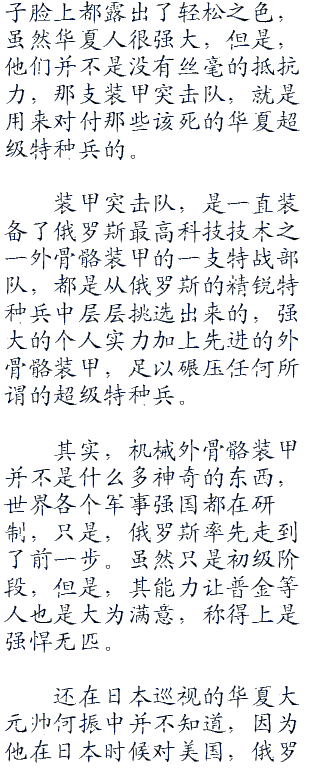 子脸上都露出了轻松之色，
虽然华夏人很强大，但是，
他们并不是没有丝毫的抵抗
力，那支装甲突击队，就是
用来对付那些该死的华夏超
级特种兵的。
装甲突击队，是一直装
备了俄罗斯最高科技技术之
一外骨骼装甲的一支特战部
队，都是从俄罗斯的精锐特
种兵中层层挑选出来的，强
大的个人实力加上先进的外
骨骼装甲，足以碾压任何所
谓的超级特种兵。
其实，机械外骨骼装甲
并不是什么多神奇的东西，
世界各个军事强国都在研
制，只是，俄罗斯率先走到
了前一步。虽然只是初级阶
段，但是，其能力让普金等
人也是大为满意，称得上是
强悍无匹。
还在日本巡视的华夏大
元帅何振中并不知道，因为
他在日本时候对美国，俄罗